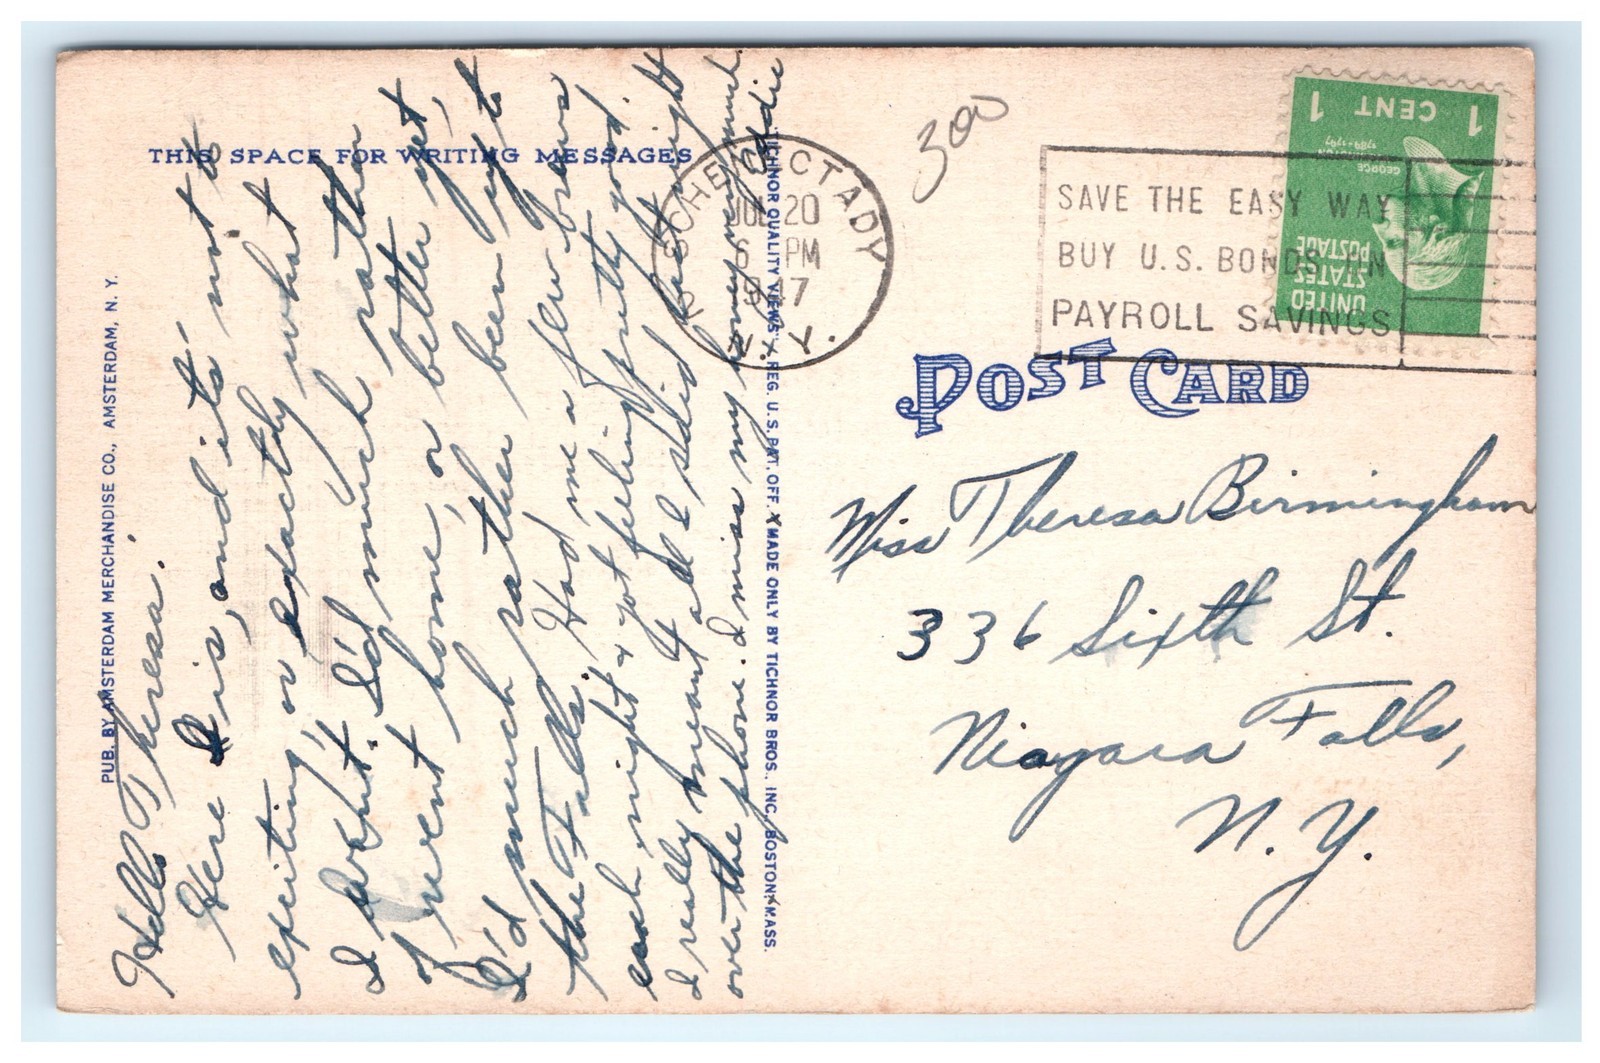 THIS SPACE FOR WRITING MESSAGES
PUB. BY AMSTERDAM MERCHANDISE CO., AMSTERDAM, N. Y.
Hello Theresa.
Here I is, and its' not to
exciting, or expactly what
I want. I'd much rather
of went home, or better yet,
I'd much rather been up to
the Falls. Had me a few brews
each night & got feeling pretty good.
I really meant all I said last night
over the phone. I miss my honey very much.
Eddie
TICHNOR QUALITY VIEWS REG. U. S. PAT. OFF. MADE ONLY BY TICHNOR BROS., INC., BOSTON, MASS.
SCHENECTADY
JUL 20
6 PM
1947
N. Y.
300
SAVE THE EASY WAY
BUY U.S. BONDS IN
PAYROLL SAVINGS
UNITED
STATES
POSTAGE
GEORGE
WASHINGTON
1789-1797
1 CENT 1
POST CARD
Miss Theresa Birmingham
336 Sixth St.
Niagara Falls,
N. Y.